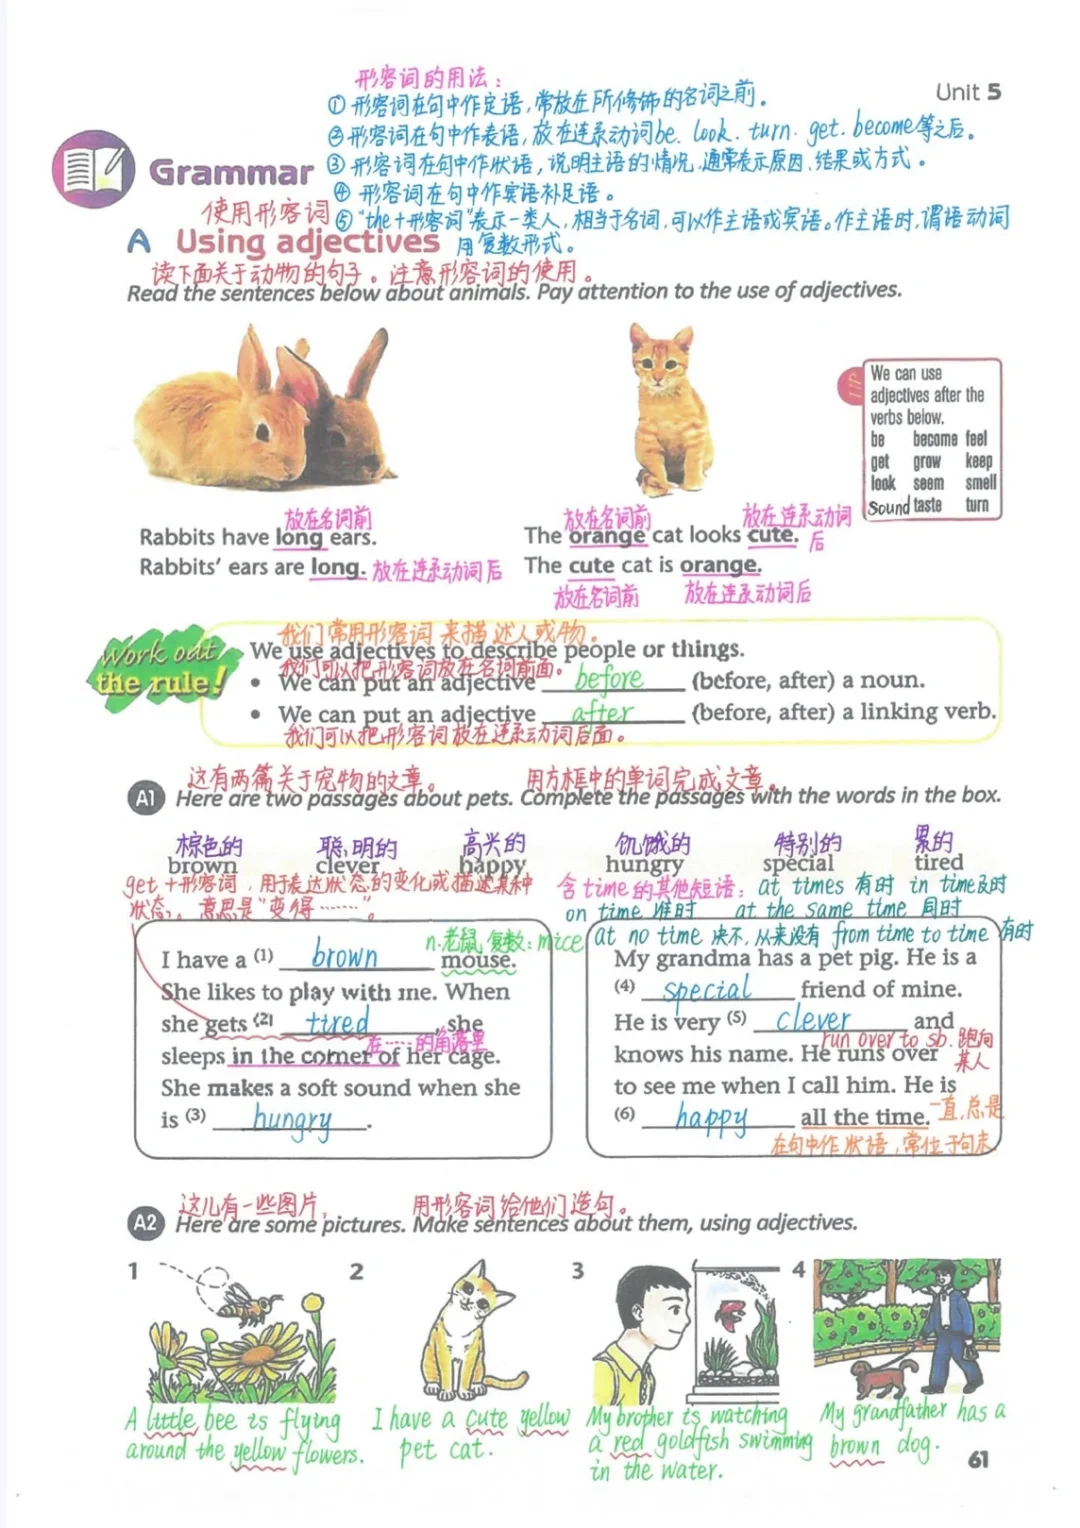 形容词的用法：
Unit 5
①形容词在句中作定语，常放在所修饰的名词之前。
②形容词在句中作表语，放在连系动词be、look、turn、get、become等之后。
Grammar
③形容词在句中作状语，说明主语的情况，通常表示原因、结果或方式。
④形容词在句中作宾语补足语。
使用形容词
⑤"the+形容词"表示一类人，相当于名词，可以作主语或宾语。作主语时，谓语动词
A Using adjectives
用复数形式。
读下面关于动物的句子。注意形容词的使用。
Read the sentences below about animals. Pay attention to the use of adjectives.
TIP
We can use
adjectives after the
verbs below.
be become feel
get grow keep
look seem smell
sound taste turn
放在名词前
放在名词前 放在连系动词后
Rabbits have long ears.
The orange cat looks cute.
Rabbits' ears are long. 放在连系动词后
The cute cat is orange.
放在名词前 放在连系动词后
Work out
the rule!
我们常用形容词来描述人或物。
We use adjectives to describe people or things.
我们可以把形容词放在名词前面。
• We can put an adjective before (before, after) a noun.
• We can put an adjective after (before, after) a linking verb.
我们可以把形容词放在连系动词后面。
这有两篇关于宠物的文章。 用方框中的单词完成文章。
A1 Here are two passages about pets. Complete the passages with the words in the box.
棕色的 聪明的 高兴的 饥饿的 特别的 累的
brown clever happy hungry special tired
get+形容词，用于表达状态的变化或描述某种
状态。意思是"变得……"。
含time的其他短语：at times 有时 in time及时
on time 准时 at the same time 同时
at no time 决不，从来没有 from time to time 有时
n.老鼠 复数：mice
I have a (1) brown mouse.
She likes to play with me. When
she gets (2) tired, she
在……的角落里
sleeps in the corner of her cage.
She makes a soft sound when she
is (3) hungry.
My grandma has a pet pig. He is a
(4) special friend of mine.
He is very (5) clever and
run over to sb. 跑向某人
knows his name. He runs over
to see me when I call him. He is
(6) happy all the time. 一直，总是
在句中作状语，常位于句末
这儿有一些图片， 用形容词给他们造句。
A2 Here are some pictures. Make sentences about them, using adjectives.
1 2 3 4
A little bee is flying
around the yellow flowers.
I have a cute yellow
pet cat.
My brother is watching
a red goldfish swimming
in the water.
My grandfather has a
brown dog.
61